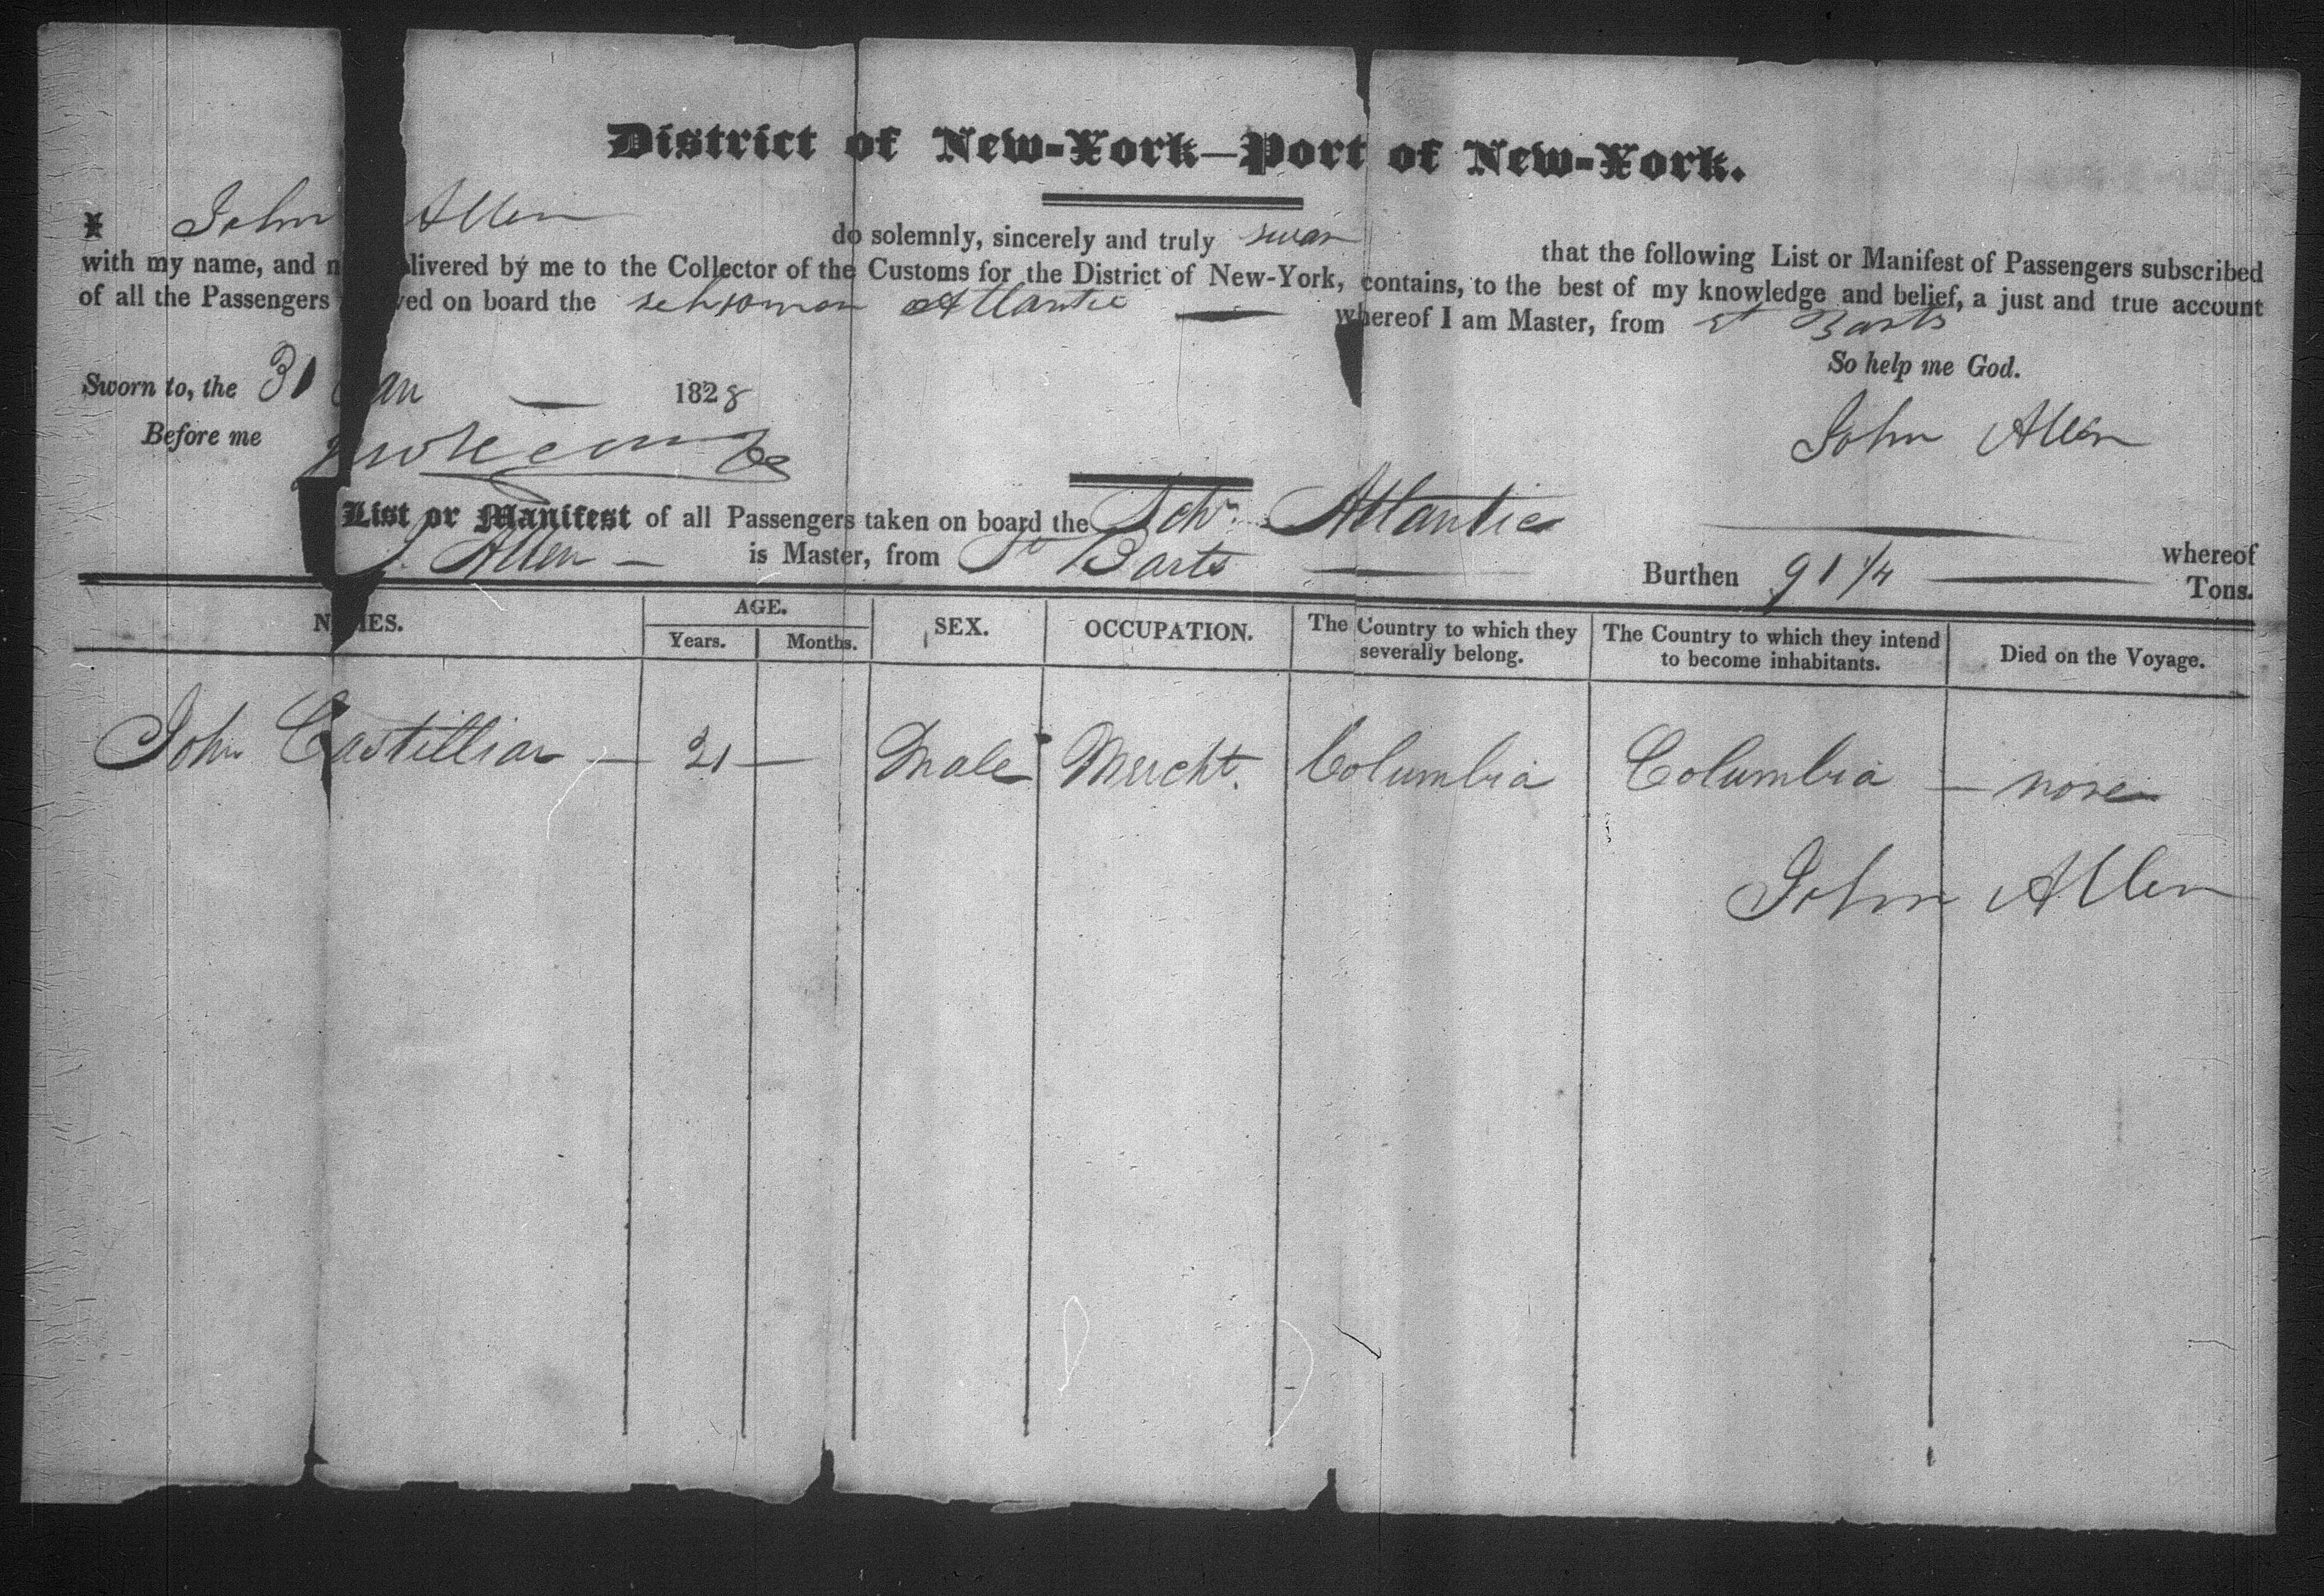 District of New-York—Port of New-York.
I John Allen do solemnly, sincerely and truly swear that the following List or Manifest of Passengers subscribed
with my name, and n livered by me to the Collector of the Customs for the District of New-York, contains, to the best of my knowledge and belief, a just and true account
of all the Passengers ved on board the schooner Atlantic whereof I am Master, from St Barts
So help me God.
Sworn to, the 31 Jan 1828
John Allen
Before me
List or Manifest of all Passengers taken on board the Schr. Atlantic whereof
J. Allen is Master, from St Barts Burthen 91 1/4 Tons.
NAMES. AGE. SEX. OCCUPATION. The Country to which they severally belong. The Country to which they intend to become inhabitants. Died on the Voyage.
Years. Months.
John Castillian — 21 — Male Mercht. Columbia Columbia — none
John Allen